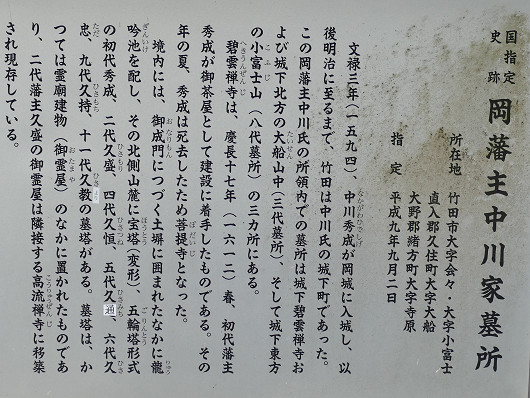 国指定
史跡 岡藩主中川家墓所
所在地 竹田市大字会々・大字小富士
直入郡久住町大字大船
大野郡緒方町大字寺原
指定 平成九年九月二日
文禄三年(一五九四)、中川秀成が岡城に入城し、以
後明治に至るまで、竹田は中川氏の城下町であった。
この岡藩主中川氏の所領内での墓所は城下碧雲禅寺お
よび城下北方の大船山中(三代墓所)、そして城下東方
の小富士山(八代墓所)の三カ所にある。
碧雲禅寺は、慶長十七年(一六一二)春、初代藩主
秀成が御茶屋として建設に着手したものである。その
年の夏、秀成は死去したため菩提寺となった。
境内には、御成門につづく土塀に囲まれたなかに龍
吟池を配し、その北側山麓に宝塔(変形)、五輪塔形式
の初代秀成、二代久盛、四代久恒、五代久通、六代久
忠、九代久持、十一代久教の墓塔がある。 墓塔は、か
つては霊廟建物(御霊屋)のなかに置かれたものであ
り、二代藩主久盛の御霊屋は隣接する高流禅寺に移築
され現存している。